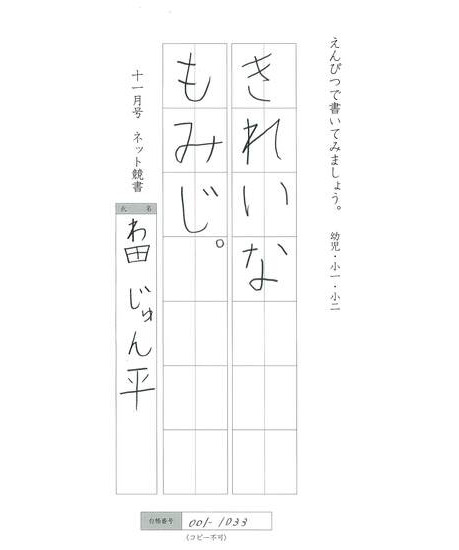 えんぴつで書いてみましょう。 幼児・小一・小二
きれいな
もみじ。
十一月号 ネット競書
氏名
わ田 じゅん平
台帳番号 001-1033
(コピー不可)